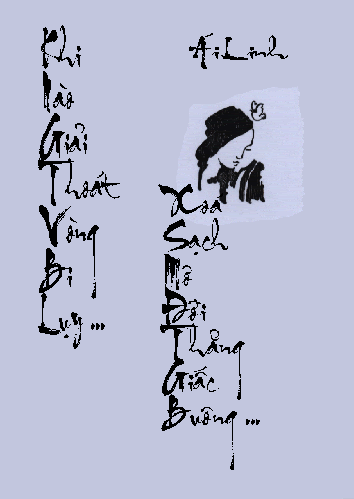 Ái Linh
Khi
Nào
Giải
Thoát
Vòng
Bi
Lụy ...
Xoá
Sạch
Nợ
Đời
Thẳng
Giấc
Buông ...